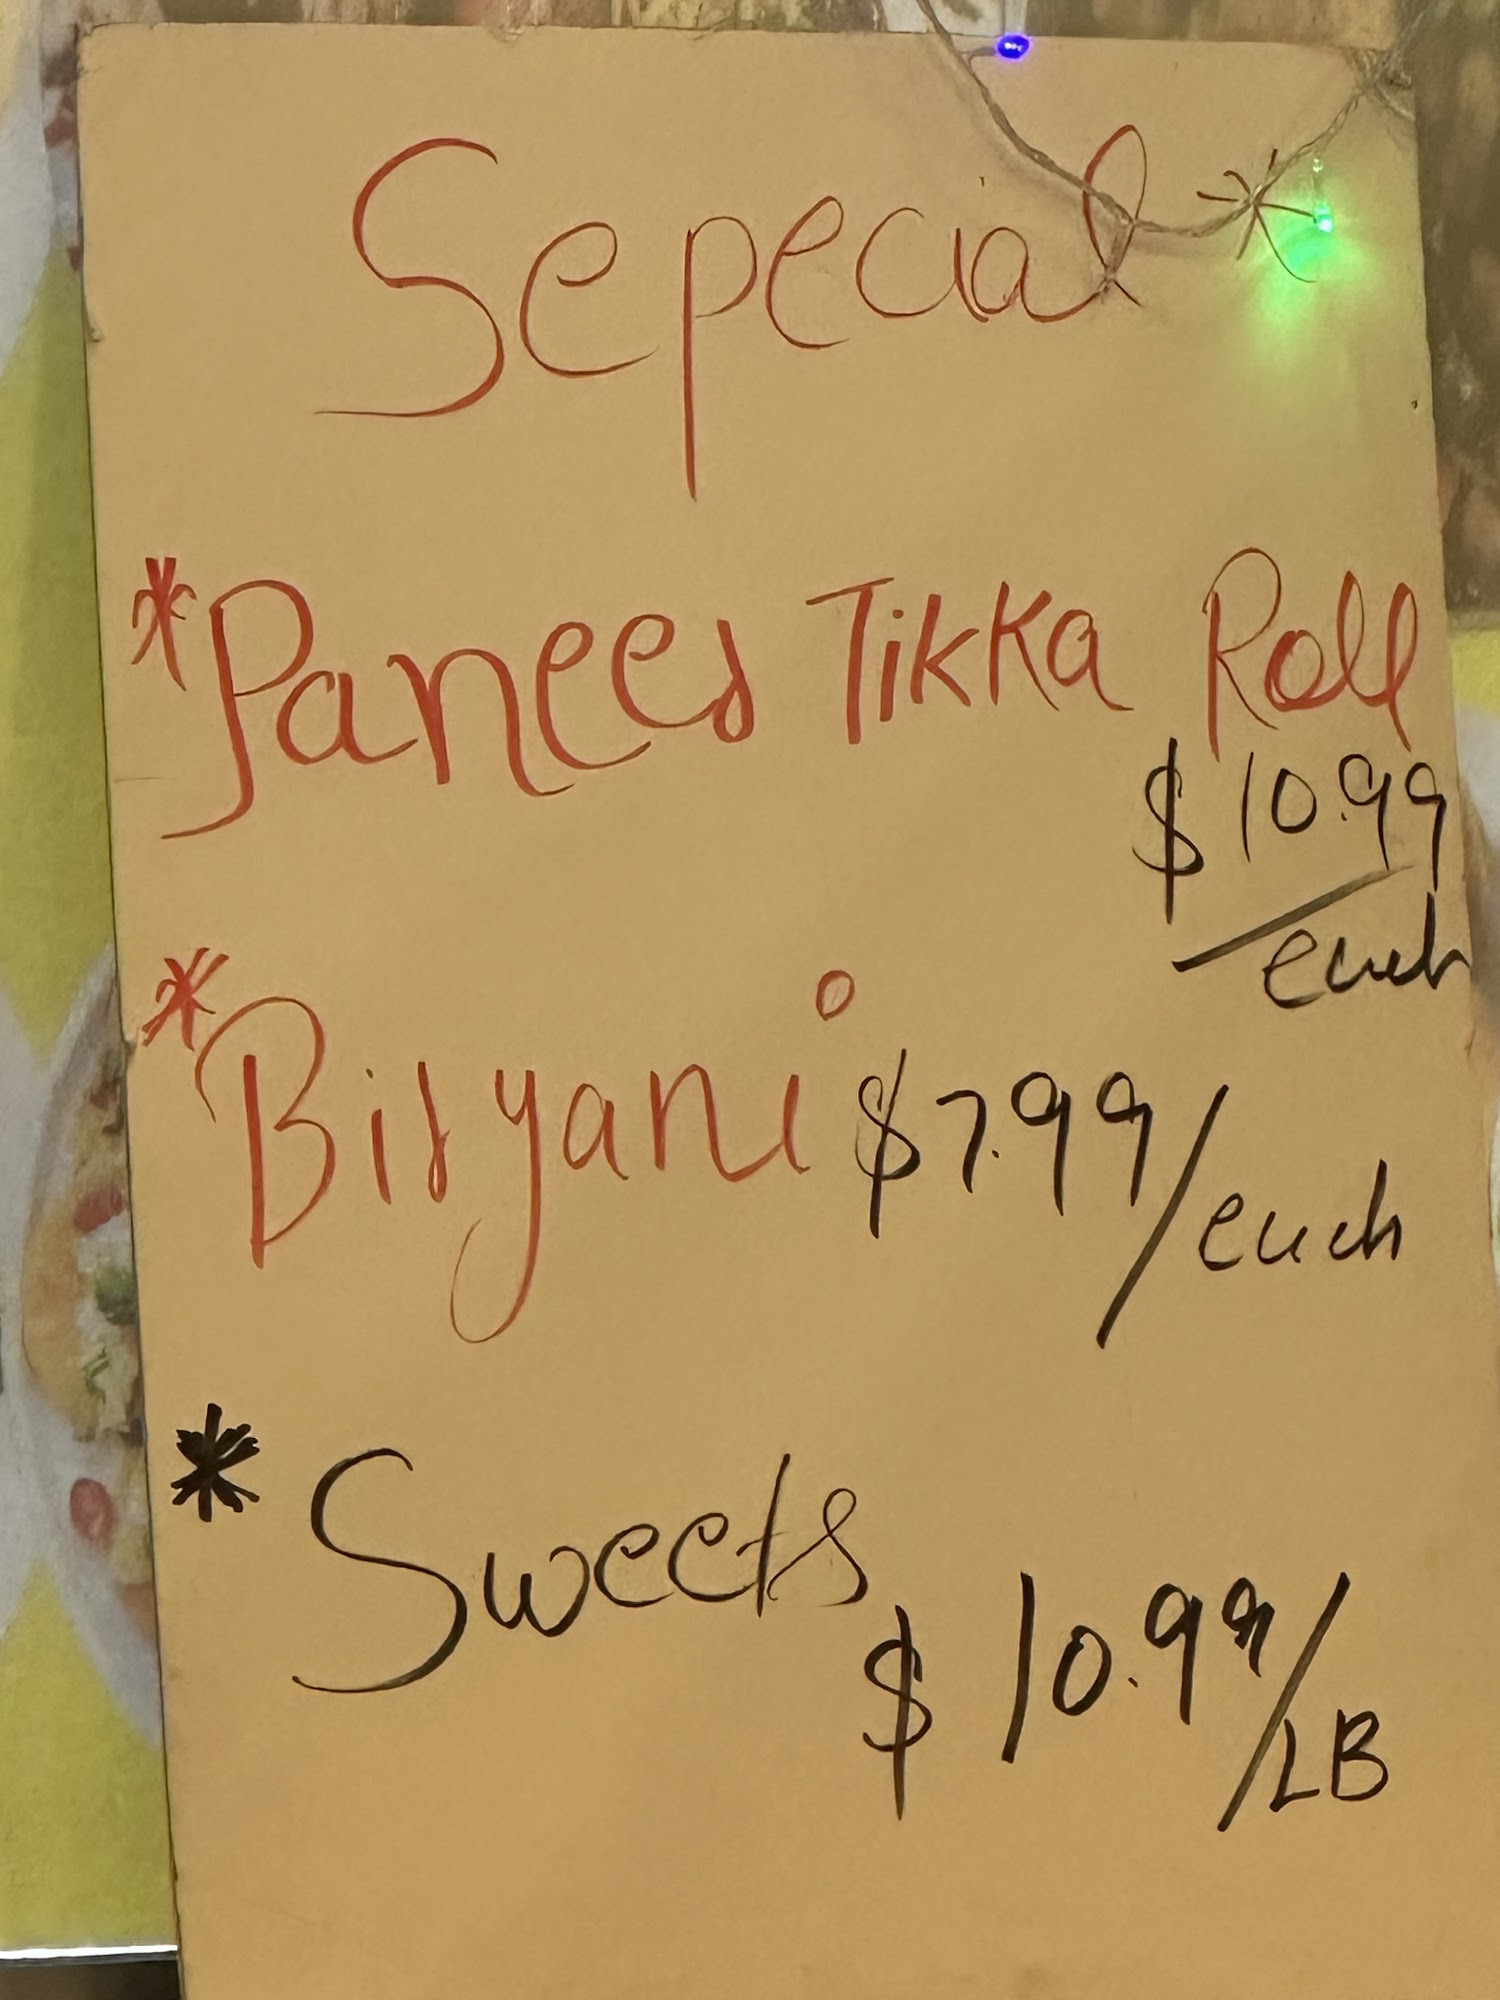 Sepecial *
* Paneer Tikka Roll
$10.99
/each
* Biryani $7.99/each
* Sweets
$10.99/LB